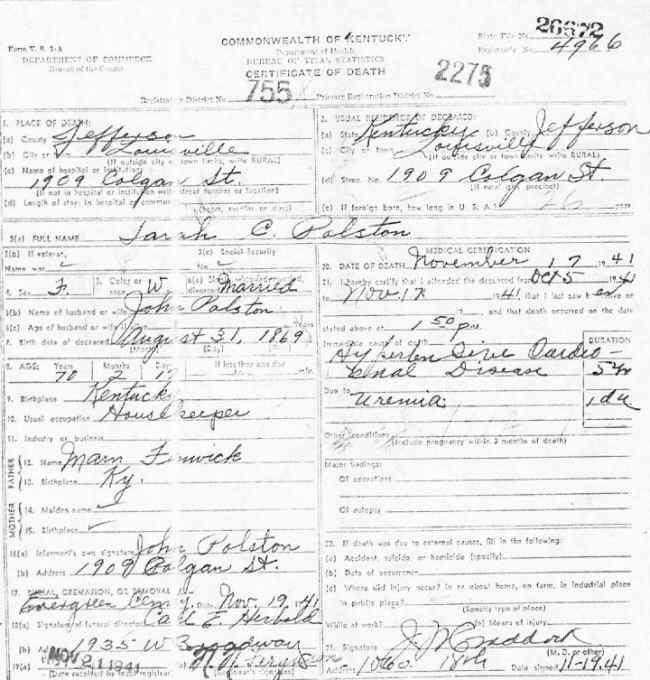 COMMONWEALTH OF KENTUCKY
26872
State File No.
Form V. S. 1-A
Department of Health
Registrar's No. 4966
DEPARTMENT OF COMMERCE
BUREAU OF VITAL STATISTICS
Bureau of the Census
CERTIFICATE OF DEATH
2275
Registration District No. 755
Primary Registration District No.
1. PLACE OF DEATH:
(a) County Jefferson
(b) City or town Louisville
(If outside city or town limits, write RURAL)
(c) Name of hospital or institution:
1909 Colgan St.
(If not in hospital or institution, street number or location)
(d) Length of stay: In hospital or
(years, months or days)
2. USUAL RESIDENCE OF DECEASED:
(a) State Kentucky (b) County Jefferson
(c) City or town Louisville
(If outside city or town limits write RURAL)
(d) Street No. 1909 Colgan St
(If rural give precinct)
(e) If foreign born, how long in U. S. A.?
3(a) FULL NAME Sarah C. Polston
3(b) If veteran,
Name war
3(c) Social Security
No.
4. Sex F. 5. Color or race W Married
6(b) Name of husband or wife John Polston
6(c) Age of husband or wife if Years
7. Birth date of deceased August 31, 1869
(Month) (Day)
8. AGE: Years Months Days If less than one day
2 17
9. Birthplace Kentucky
10. Usual occupation Housekeeper
11. Industry or business
FATHER
12. Name Fenwick
13. Birthplace Ky.
MOTHER
14. Maiden name
15. Birthplace
16(a) Informant's own signature John Polston
(b) Address 1909 Colgan St.
17. BURIAL, CREMATION, OR REMOVAL
Evergreen Date Nov. 19, 41
18(a) Signature of funeral director Carl E. Herbold
(b) Ad 1935 W Broadway
19(a) NOV 21 1941
(Date received by local registrar) (Registrar's signature)
MEDICAL CERTIFICATION
20. DATE OF DEATH November 17 1941
21. I hereby certify that I attended the deceased from Oct 5 1941
to Nov. 17 1941, that I last saw h er alive on
and that death occurred on the date
stated above at 1 50 p.m.
Immediate cause of death
DURATION
Hypertensive Cardio-
Renal Disease 5 yr
Due to
Uremia 1 da
Other conditions
(Include pregnancy within 3 months of death)
Major findings:
Of operations
Of autopsy
22. If death was due to external causes, fill in the following:
(a) Accident, suicide, or homicide (specify)
(b) Date of occurrence
(c) Where did injury occur? In or about home, on farm, in industrial place
in public place?
(Specify type of place)
While at work? (e) Means of injury
23. Signature J. M. Craddock
(M. D. or other)
Address 1060 18th Date signed 11-19-41